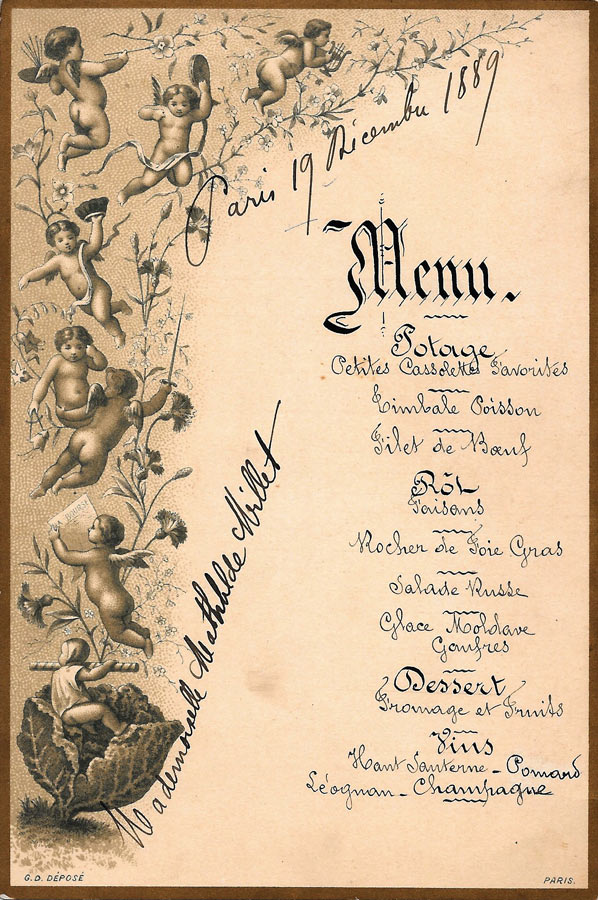 Paris 19 Décembre 1889
Menu.
Potage
Petites Cassolettes Favorites
Timbale Poisson
Filet de Bœuf
Rôt
Faisans
Rocher de Foie Gras
Salade Russe
Glace Moldave
Gaufres
Dessert
Fromage et Fruits
Vins
Haut Sauterne - Pomard
Léognan - Champagne
Mademoiselle Mathilde Millet
G.D. DÉPOSÉ
PARIS.